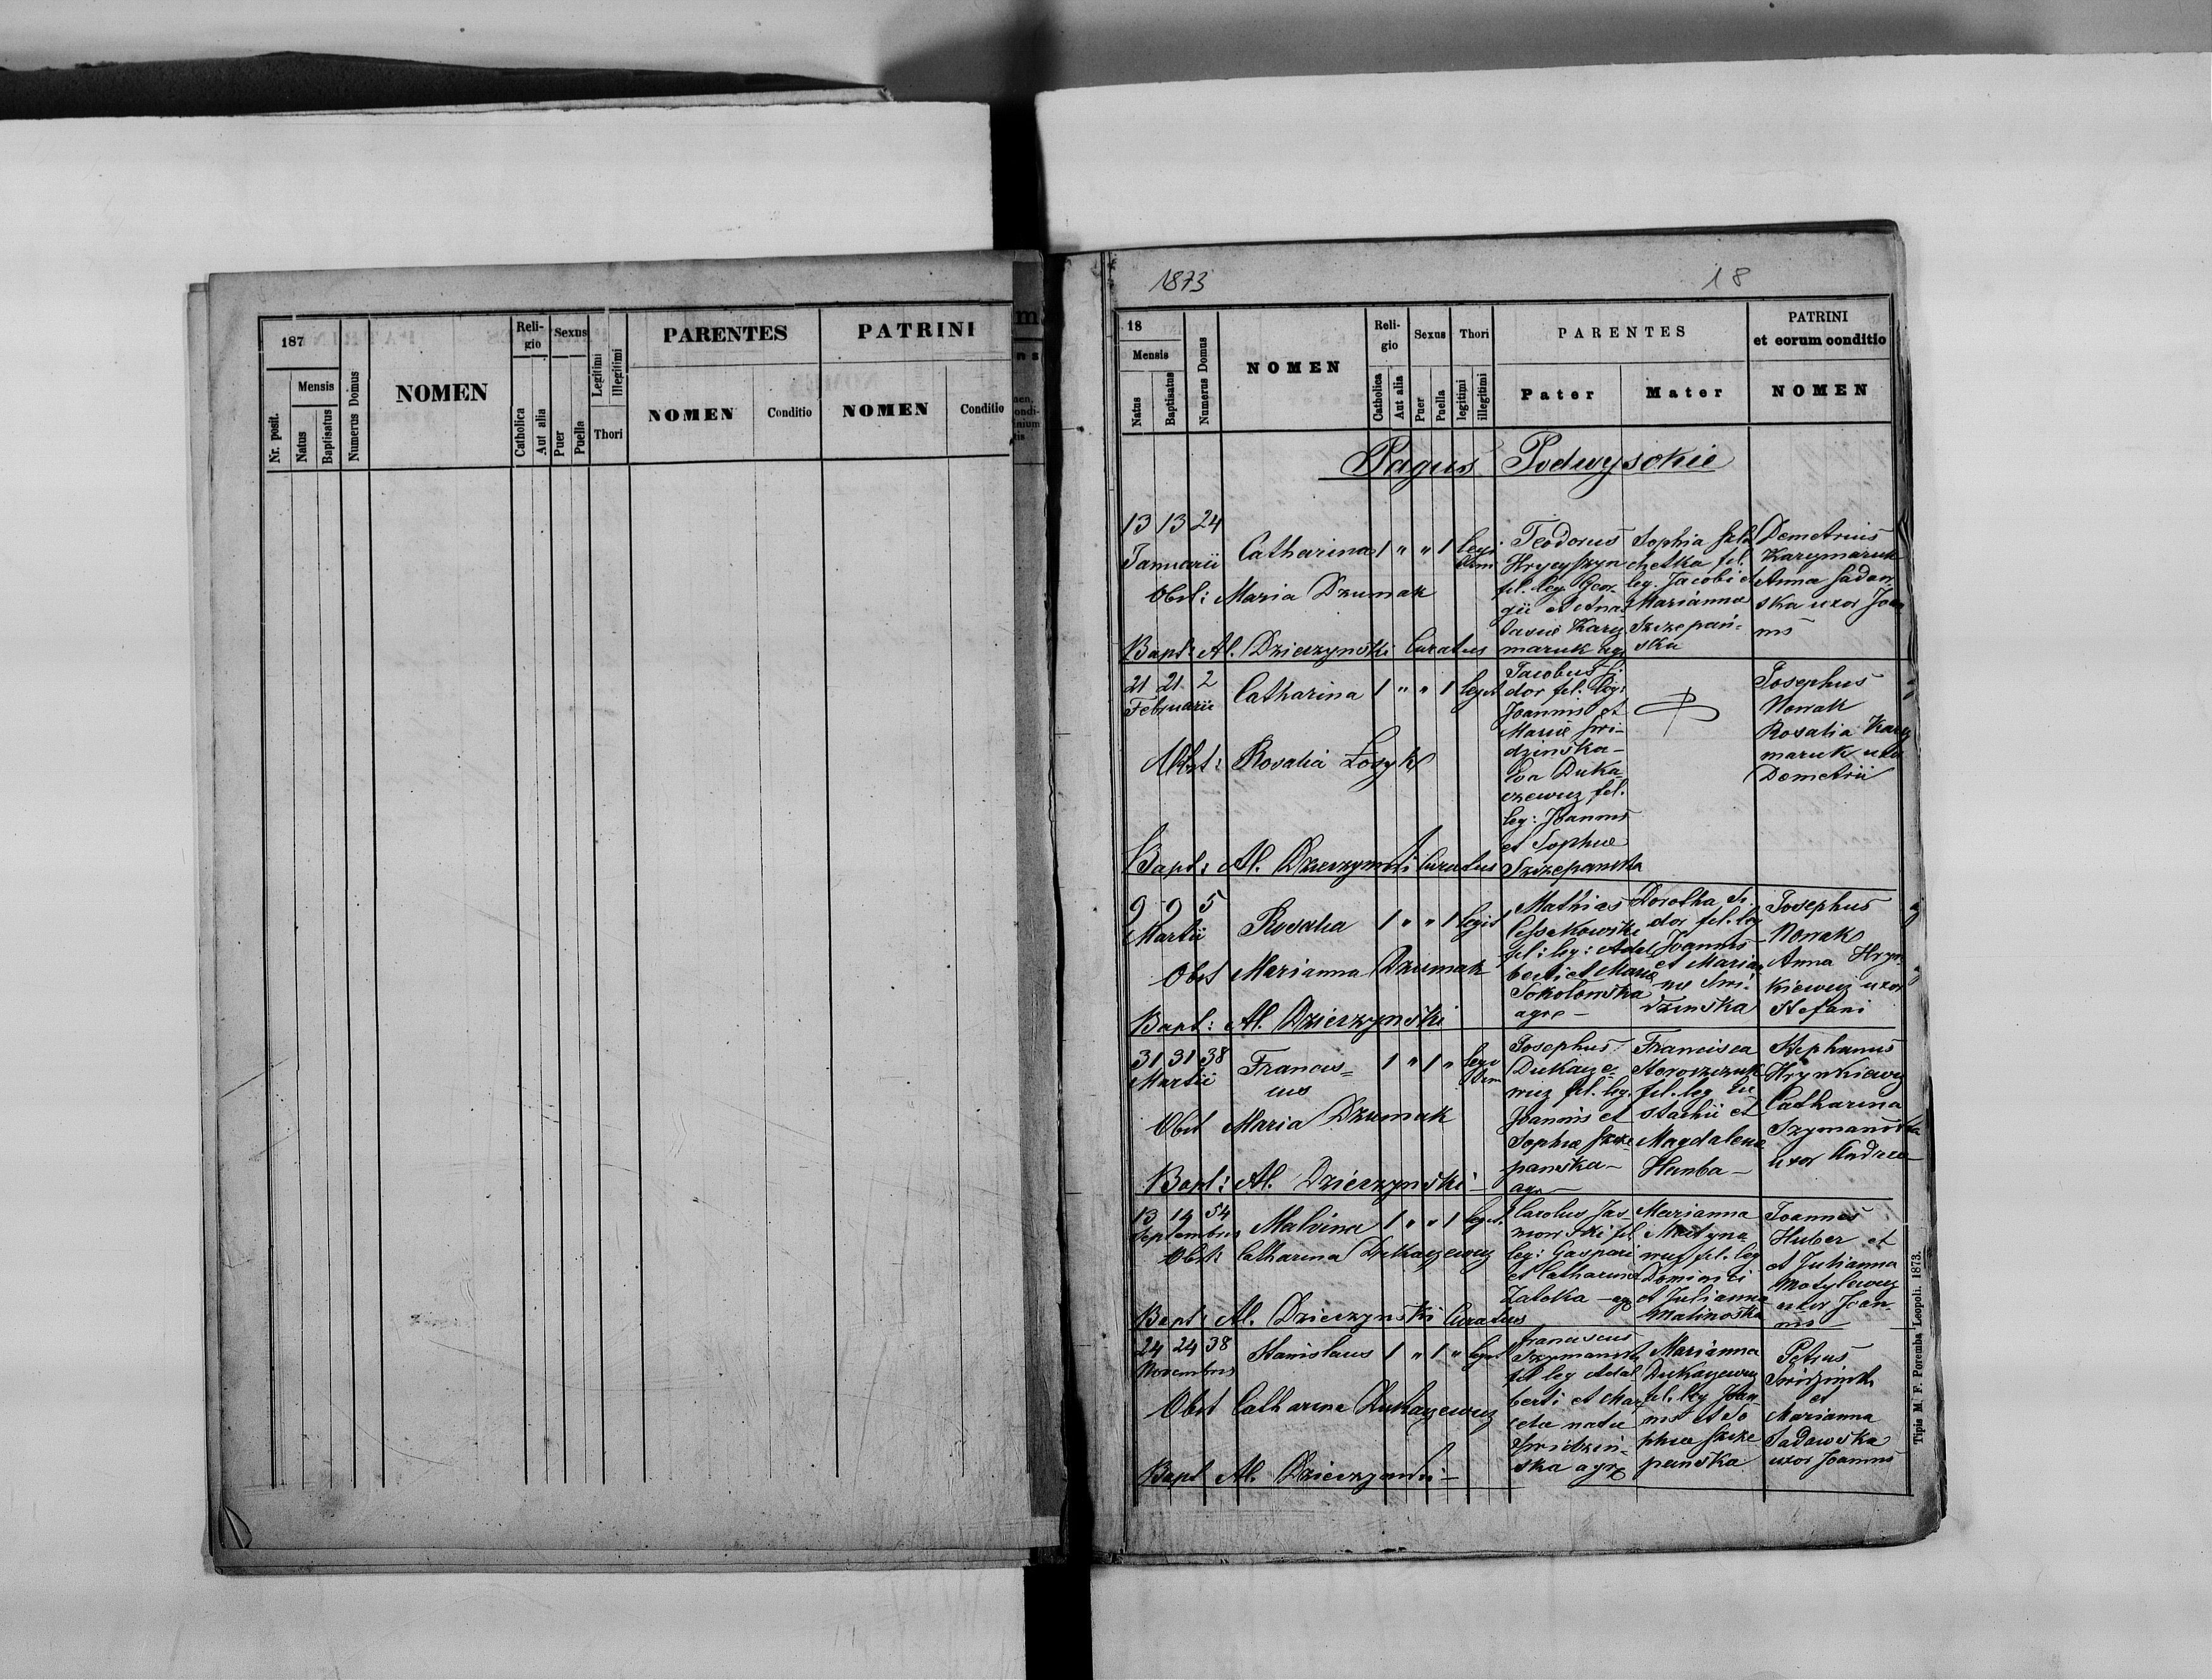 187
Mensis
Nr. posit.
Natus
Baptisatus
Numerus Domus
NOMEN
Religio
Catholica
Aut alia
Sexus
Puer
Puella
Legitimi
Illegitimi
Thori
PARENTES
NOMEN
Conditio
PATRINI
NOMEN
Conditio
1873
18
18
Mensis
Natus
Baptisatus
Numerus Domus
NOMEN
Religio
Catholica
Aut alia
Sexus
Puer
Puella
Thori
legitimi
illegitimi
PARENTES
Pater
Mater
PATRINI
et eorum conditio
NOMEN
Pagus Podwysokie
13 13 24
Januarii
Catharina 1 " " 1
Obst: Maria Dzumak
Bapt: Al. Dzierzynski Curatus
Teodorus
fil. leg. Geor-
gii et Ana-
maruk
Sophia
chetka fil.
leg. Jacobi et
Marianna
Szczepań-
ska
Demetrius
Karymaruk
Anna Sadow-
ska uxor Joan
nis
21 21 2
Februarii
Catharina 1 " " 1 legit
Obst: Rosalia Łosyk
Bapt: Al. Dzierzynski Curatus
Jacobus
dor fil. leg:
Joannis et
Mariæ Swi-
dzinska-
Eva Duka
czewicz fil.
leg: Joannis
et Sophiæ
Szczepanska
Josephus
Nowak
Rosalia Kary
maruk uxor
Demetrii
9 9 5
Martii
Rosalia 1 " " 1 legit
Obst Marianna Dzumak
Bapt: Al. Dzierzynski
Mathias
fil: leg: Adal
berti et Mariæ
Sokołowska
agr
Dorotha Si
dor fil. leg
Joannis
et Marian
næ Swi-
dzinska
Josephus
Nowak
Anna Hryn-
kiewicz uxor
Stefani
31 31 38
Martii
Francis=
cus
1 " 1 "
Obst Maria Dzumak
Bapt: Al. Dzierzynski -
Josephus
Dukacze-
wicz fil. leg.
Joannis et
Sophiæ Szcze
panska -
agr
Francisca
fil. leg Eu
stachii et
Magdalena
Hanba -
Stephanus
Hrynkiewicz
Catharina
Szymanska
uxor Andreæ
13 14 54
Septembris
Malvina 1 " " 1 legit.
Obst: Catharina Dukaczewicz
Bapt: Al. Dzierzynski Curatus
Carolus Jas
fil
leg: Gaspari
et Catharina
Zatoka - agr
Marianna
fil. leg
Dominici
et Julianna
Malinoska
Joannes
Huber et
et Julianna
Motylewicz
uxor Joan-
nis
24 24 38
Novembris
Stanislaus 1 " 1 " legit
Obst Catharina Dukaczewicz
Bapt Al. Dzierzynski -
Franciscus
Szymanski
fil leg Adal-
berti et Mar
natæ
Swidzin-
ska agr
Marianna
Dukaczewicz
fil. leg Joan-
nis et So
phiæ Szcze
panska
Petrus
Swidzinski
et
Marianna
Sadowska
uxor Joannis
Tipis M. F. Poremba Leopoli. 1873.